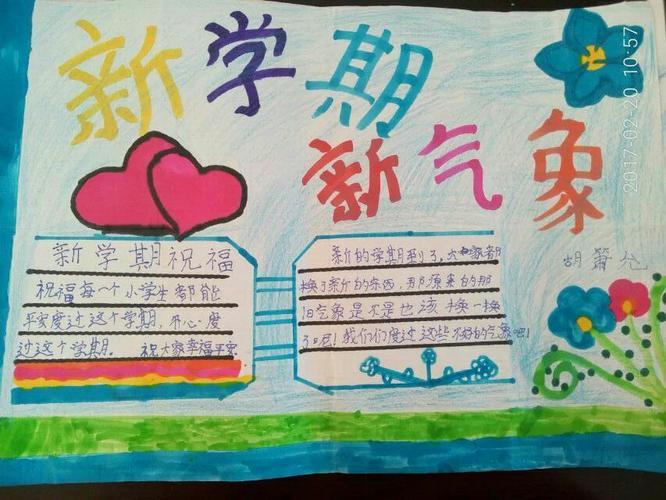 新学期
新气象
新学期祝福
祝福每一个小学生都能
平安度过这个学期，开心度
过这个学期。 祝大家幸福平安
新的学期到了，大家都
换了新的东西，那原来的那
旧气象是不是也该换一换
了呢！我们们度过这些不好的气象吧！
胡箫允
2017-02-20 10:57